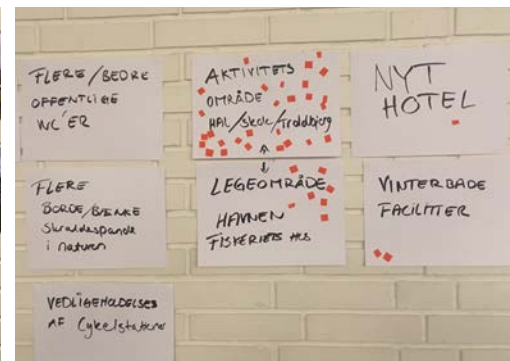 FLERE/BEDRE
OFFENTLIGE
WC'ER
AKTIVITETS
OMRÅDE
HAL/Skole/Troldbjerg
NYT
HOTEL
FLERE
BORDE/BÆNKE
Skraldespande
i naturen
LEGEOMRÅDE
HAVNEN
FISKERIETS HUS
VINTERBADE
FACILITTER
VEDLIGEHOLDELSES
AF Cykelstatierne